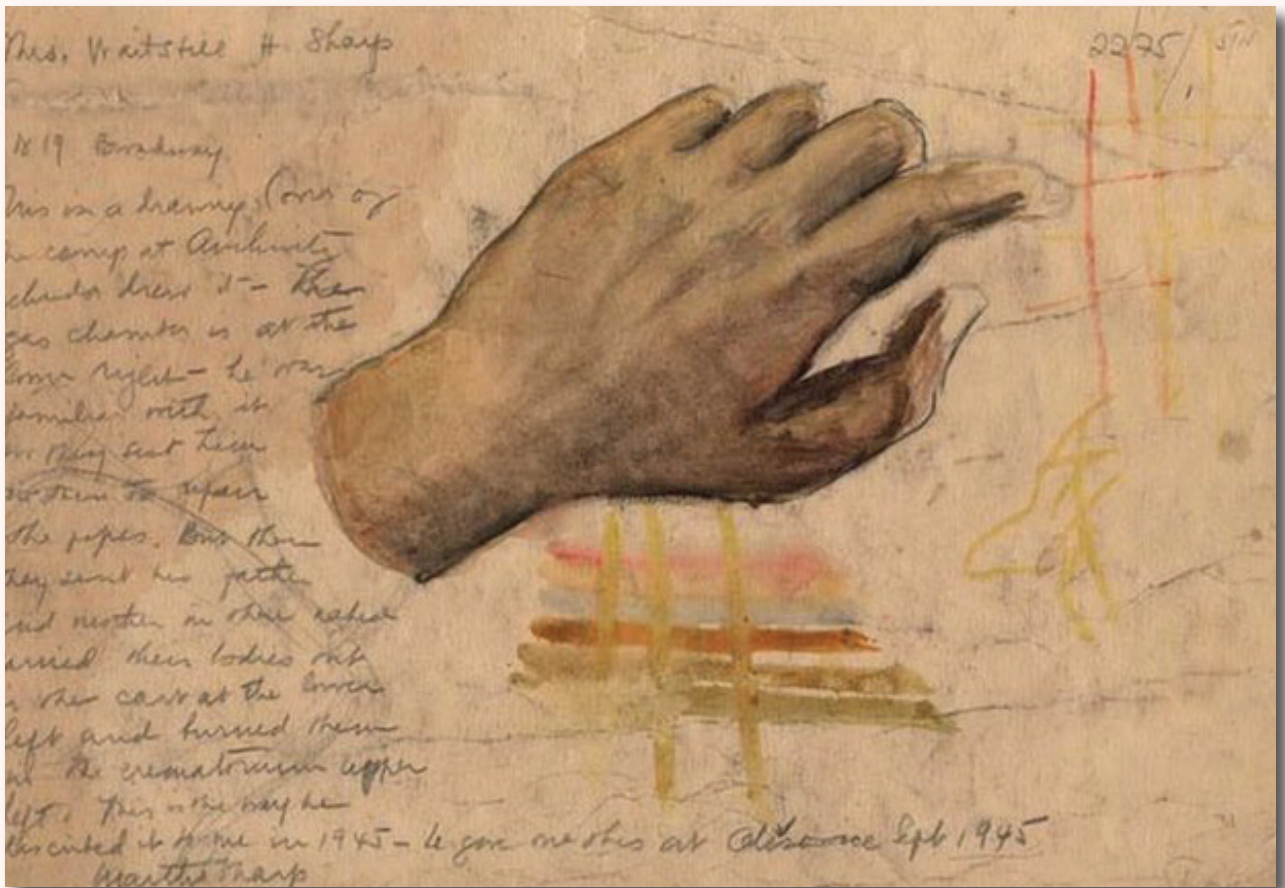 Mrs. Waitstill H. Sharp
1819 Broadway
This is a drawing (one of
camp at
drew it – The
gas chamber is at the
right – he was
familiar with it
they sent him
in there to repair
the pipes. But then
they sent his father
and mother in there
carried their bodies out
the cart at the lower
left and burned them
the crematorium upper
left. This is the way he
described it to me in 1945 – He gave me this at Sept 1945
Martha Sharp
2275/1